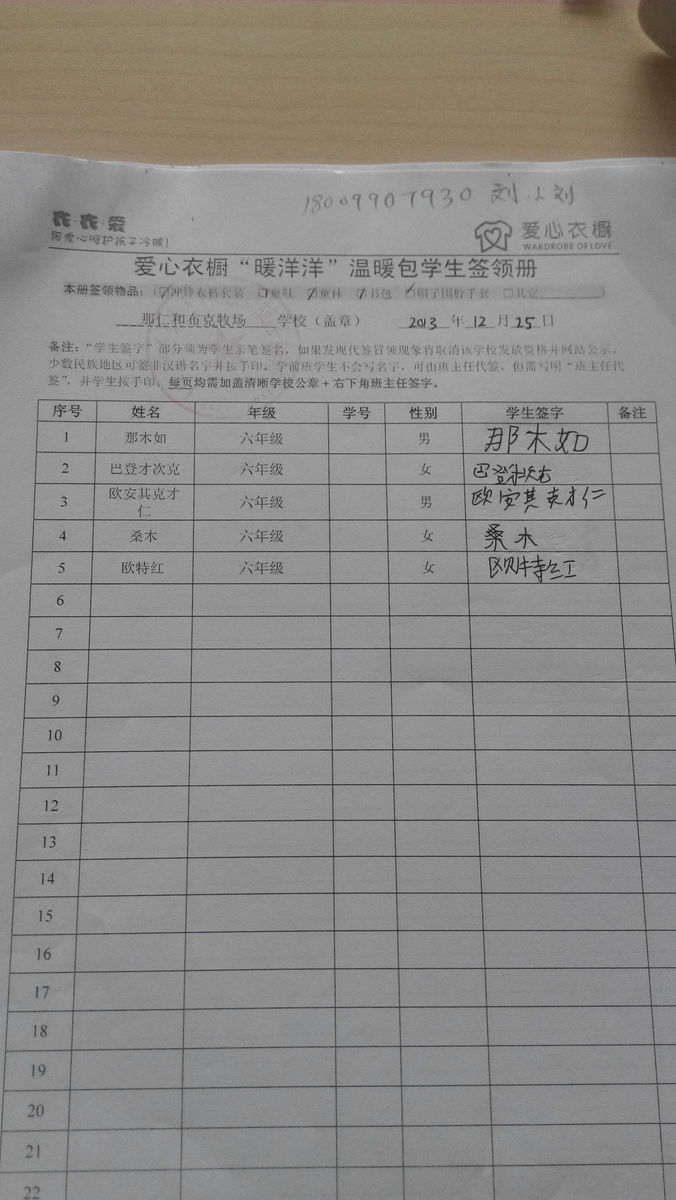 18009907930 刘小刘
衣·衣·爱
用爱心呵护孩子冷暖!
爱心衣橱
WARDROBE OF LOVE
爱心衣橱“暖洋洋”温暖包学生签领册
本册签领物品:(☑冲锋衣裤套装 ☐童鞋 ☑童袜 ☑书包 ☑帽子围脖手套 ☐其它
那仁和布克牧场 学校(盖章) 2013 年 12 月 25 日
备注:“学生签字”部分须为学生亲笔签名,如果发现代签冒领现象将取消该学校发放资格并网站公示。
少数民族地区可签非汉语名字并按手印,学前班学生不会写名字,可由班主任代签,但需写明“班主任代
签”,并学生按手印。每页均需加盖清晰学校公章+右下角班主任签字。
序号 姓名 年级 学号 性别 学生签字 备注
1 那木如 六年级 男 那木如
2 巴登才次克 六年级 女 巴登才次克
3 欧安其克才仁 六年级 男 欧安其克才仁
4 桑木 六年级 女 桑木
5 欧特红 六年级 女 欧特红
6
7
8
9
10
11
12
13
14
15
16
17
18
19
20
21
22